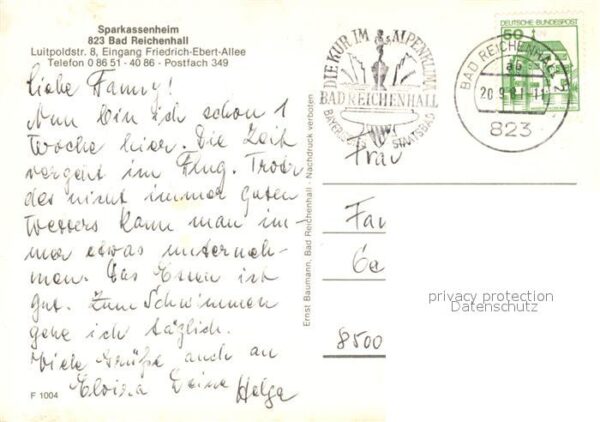 Sparkassenheim
823 Bad Reichenhall
Luitpoldstr. 8, Eingang Friedrich-Ebert-Allee
Telefon 0 86 51 - 40 86 - Postfach 349
Liebe Fanny!
Nun bin ich schon 1
Woche hier. Die Zeit
vergeht im Flug. Trotz
des nicht immer guten
Wetters kann man im-
mer etwas unterneh-
men. Das Essen ist
gut. Zum Schwimmen
gehe ich täglich.
Viele Grüße auch an
Deine Helga
F 1004
Ernst Baumann, Bad Reichenhall - Nachdruck verboten
DIE KUR IM ALPENKLIMA
BAD REICHENHALL
BAYER. STAATSBAD
DEUTSCHE BUNDESPOST
50
BAD REICHENHALL 2
ab
20.9.81-11
823
Frau
Fan
Ga
8500
privacy protection
Datenschutz